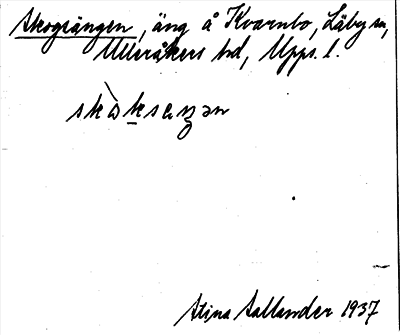 Skogsängen, äng å Kvarnbo, Läby sn,
Ulleråkers hd, Upps. l.
skὰksæŋən
Stina Sallander 1937